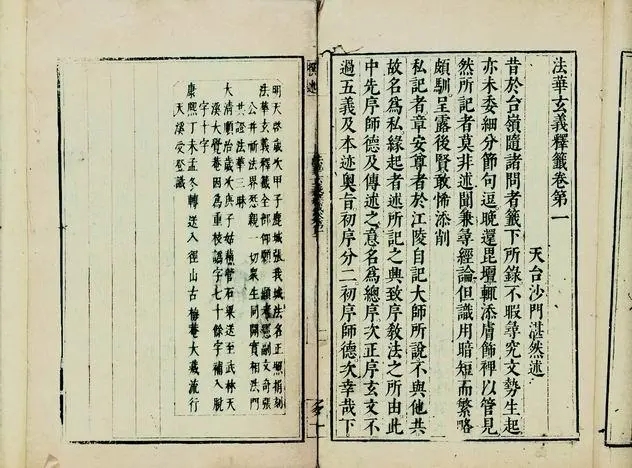 法華玄義釋籤卷第一
天台沙門湛然述
昔於台嶺隨諸問者籤下所錄不暇尋究文勢生起
亦未委細分節句逗晚還毘壇輒添膚飾裨以管見
然所記者莫非述聞兼尋經論但識用暗短而繁略
頗馴呈露後賢敢怖添削
私記者章安尊者於江陵自記大師所說不與他共
故名爲私緣起者述所記之興致序敎法之所由此
中先序師德及傳述之意名爲總序次正序玄文不
過五義及本迹奧旨初序分二初序師德次幸哉下
撰述
明天啓歲次甲子鹿城張我城法名正照捐刻
法華玄義釋籤全部仰願 顯考憲副文奇張
公幷祈法界怨親一切衆生同開實相法門
共證法華三昧
大清順治歲次子姑蘇管石渠送至武林天
溪大覺菴因爲重校譌字七十餘字補入脫
字十字
康熙丁未孟冬轉送入徑山古梅菴大藏流行
天溪受登識